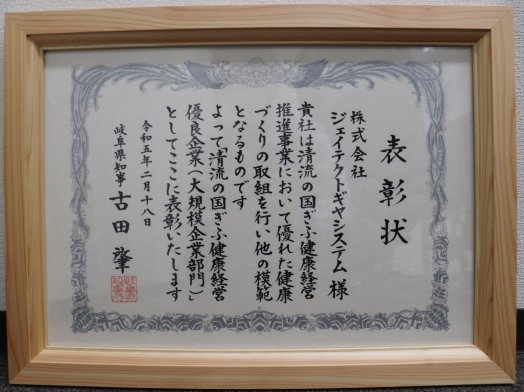 表彰状
株式会社
ジェイテクトギヤシステム 様
貴社は清流の国ぎふ健康経営
推進事業において優れた健康
づくりの取組を行い他の模範
となるものです
よって「清流の国ぎふ健康経営
優良企業（大規模企業部門）」
としてここに表彰いたします
令和五年二月十八日
岐阜県知事 古田 肇